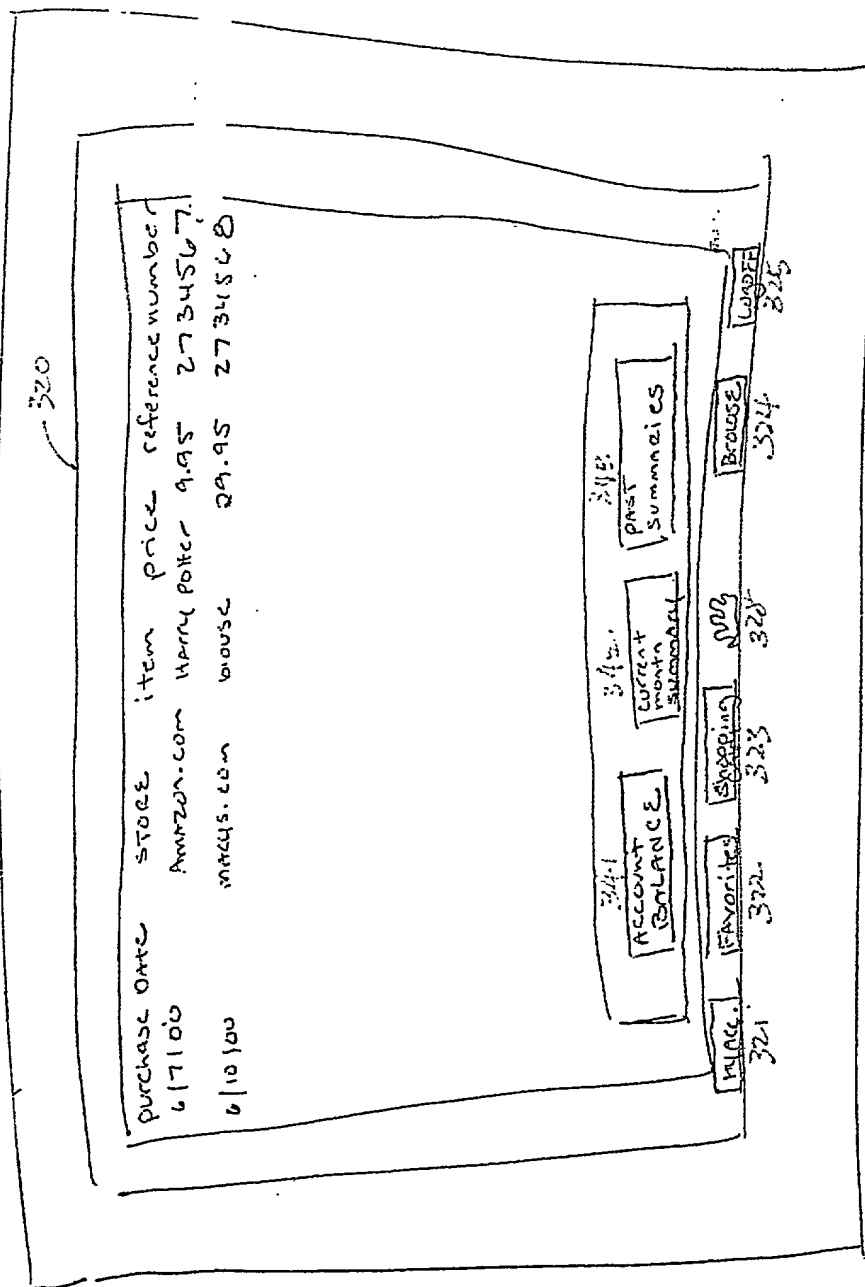 320
purchase DATE STORE item price reference number
6/7/00 Amazon.com Harry Potter 9.95 2734567
6/10/00 macys.com blouse 29.95 2734568
341
ACCOUNT BALANCE
current month summary
PAST summaries
My Acc. Favorites Shopping Browse LOGOFF
321 322 323 328 324 325